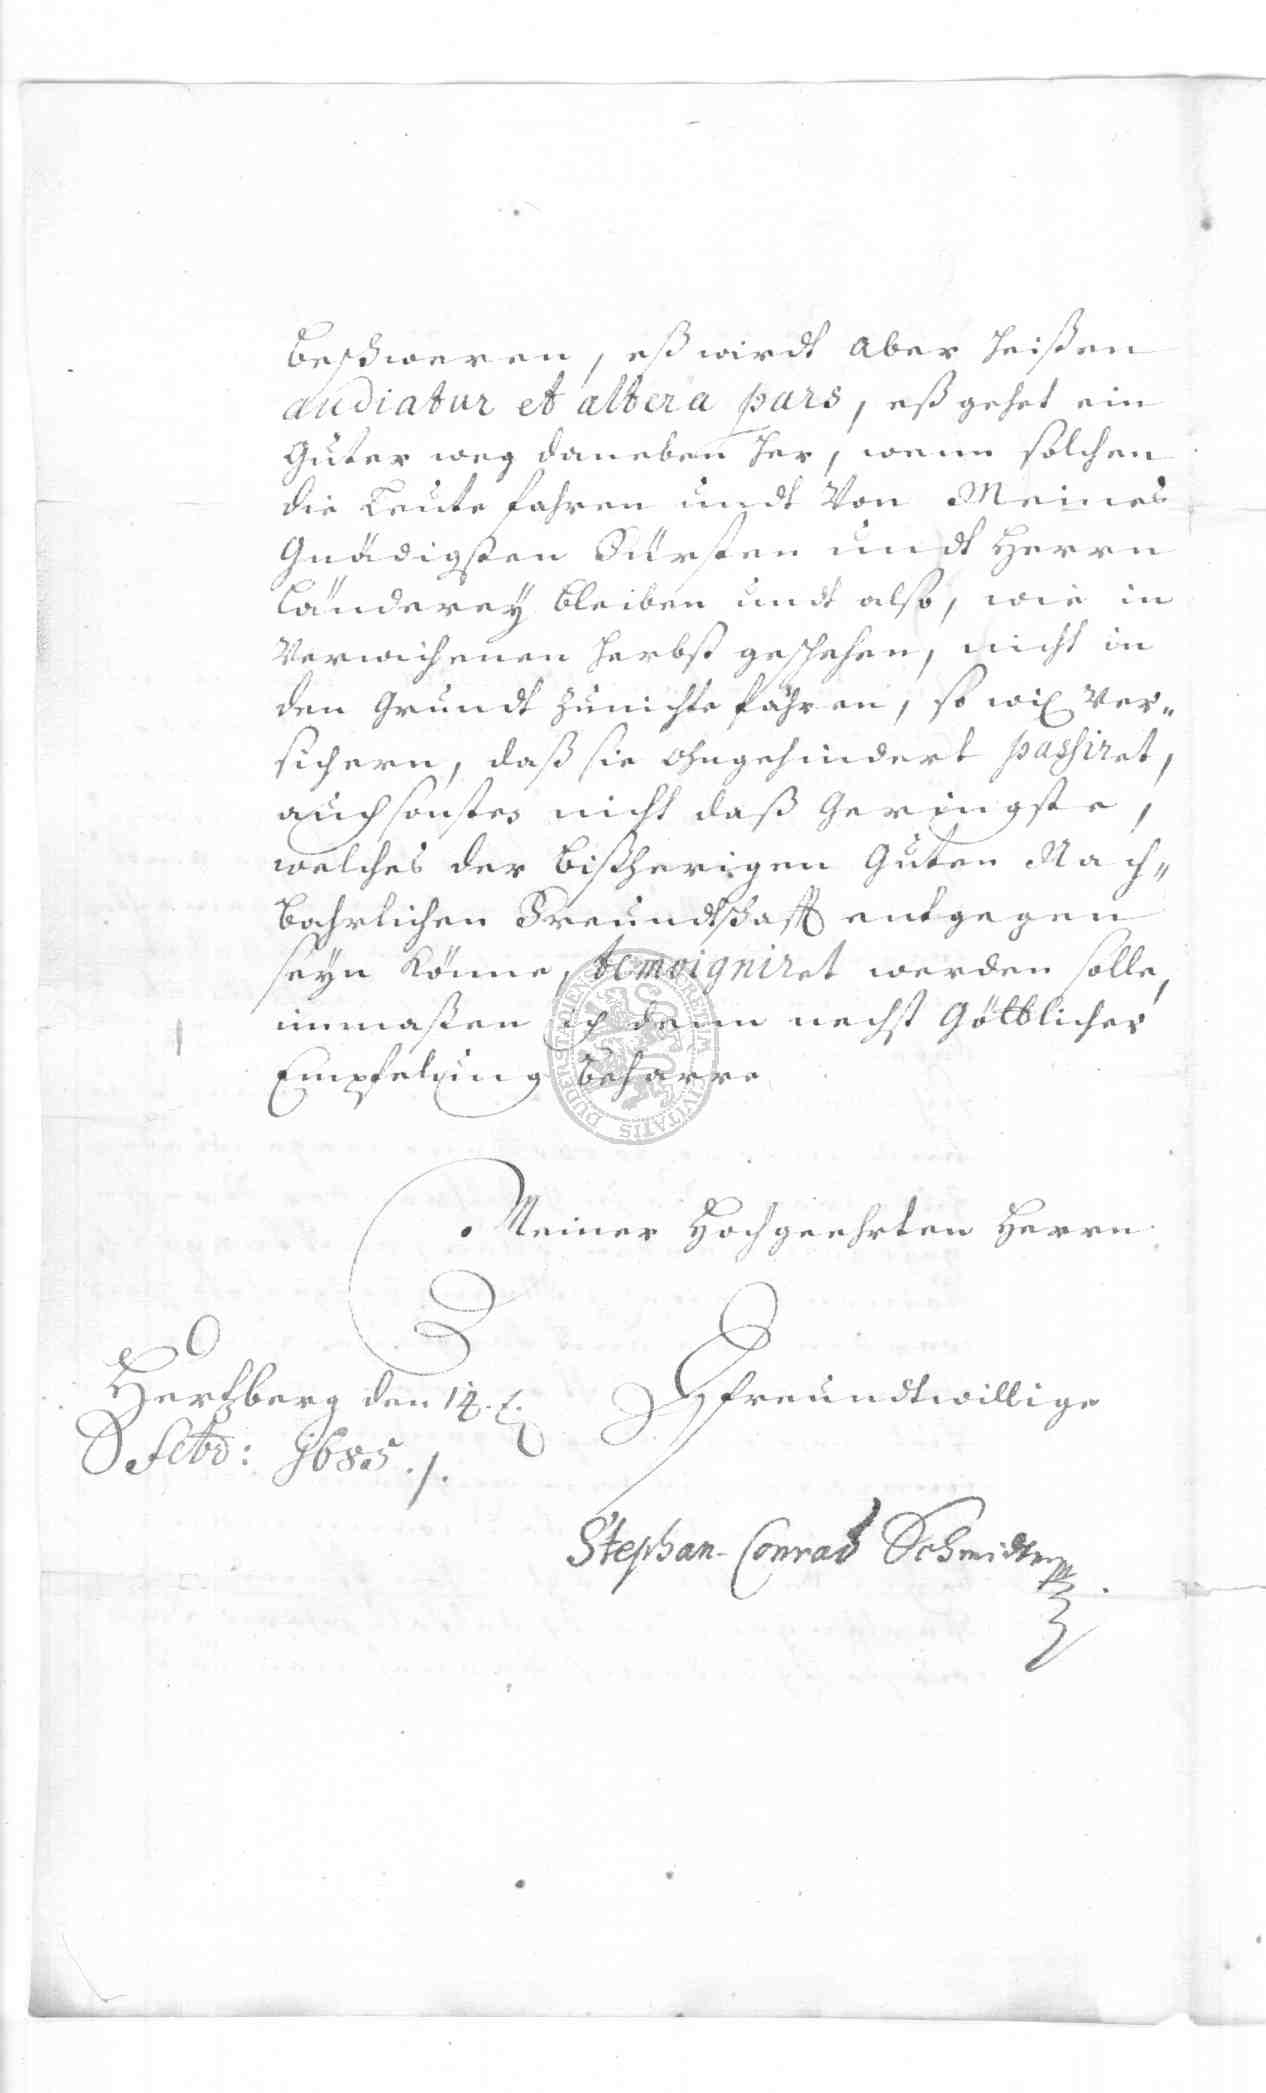 beschweren, eß wirdt aber heißen
audiatur et altera pars, eß gehet ein
guter weg daneben her, wenn solchen
die Leute fahren undt Von Meines
Gnädigsten Fürsten undt Herrn
Länderey bleiben undt also, wie in
Verwichenen herbst geschehen, nicht in
den grundt zunichte fahren, so will Ver„
sichern, daß sie ohngehindert passiret,
auch sonsten nicht daß geringste,
welches der bißherigen guten Nach„
bahrlichen Freundtschafft entgegen
seyn könne, temoigniret werden solle,
immaßen ich denn nechst Göttlicher
Empfelung beharre
Meiner Hochgeehrten Herrn
Hertzberg den 12.
Febr: 1685 ./.
freundtwillige
Stephan-Conrad Schmidt
DUDERSTADIENSIS
CIVITATIS